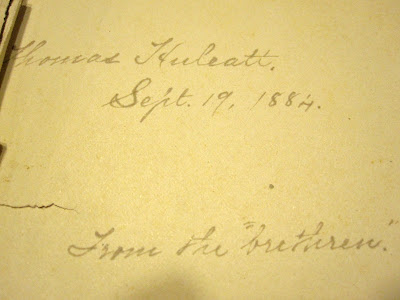 Thomas Huleatt.
Sept. 19, 1884.
From the "brethren."